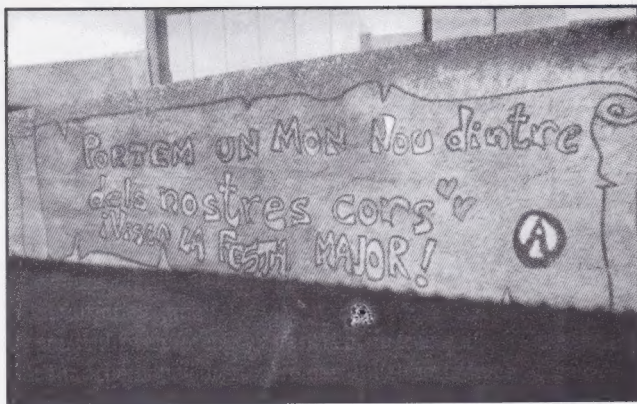 PORTEM UN MON NOU dintre
dels nostres cors
iVisca LA FESTA MAJOR!
A